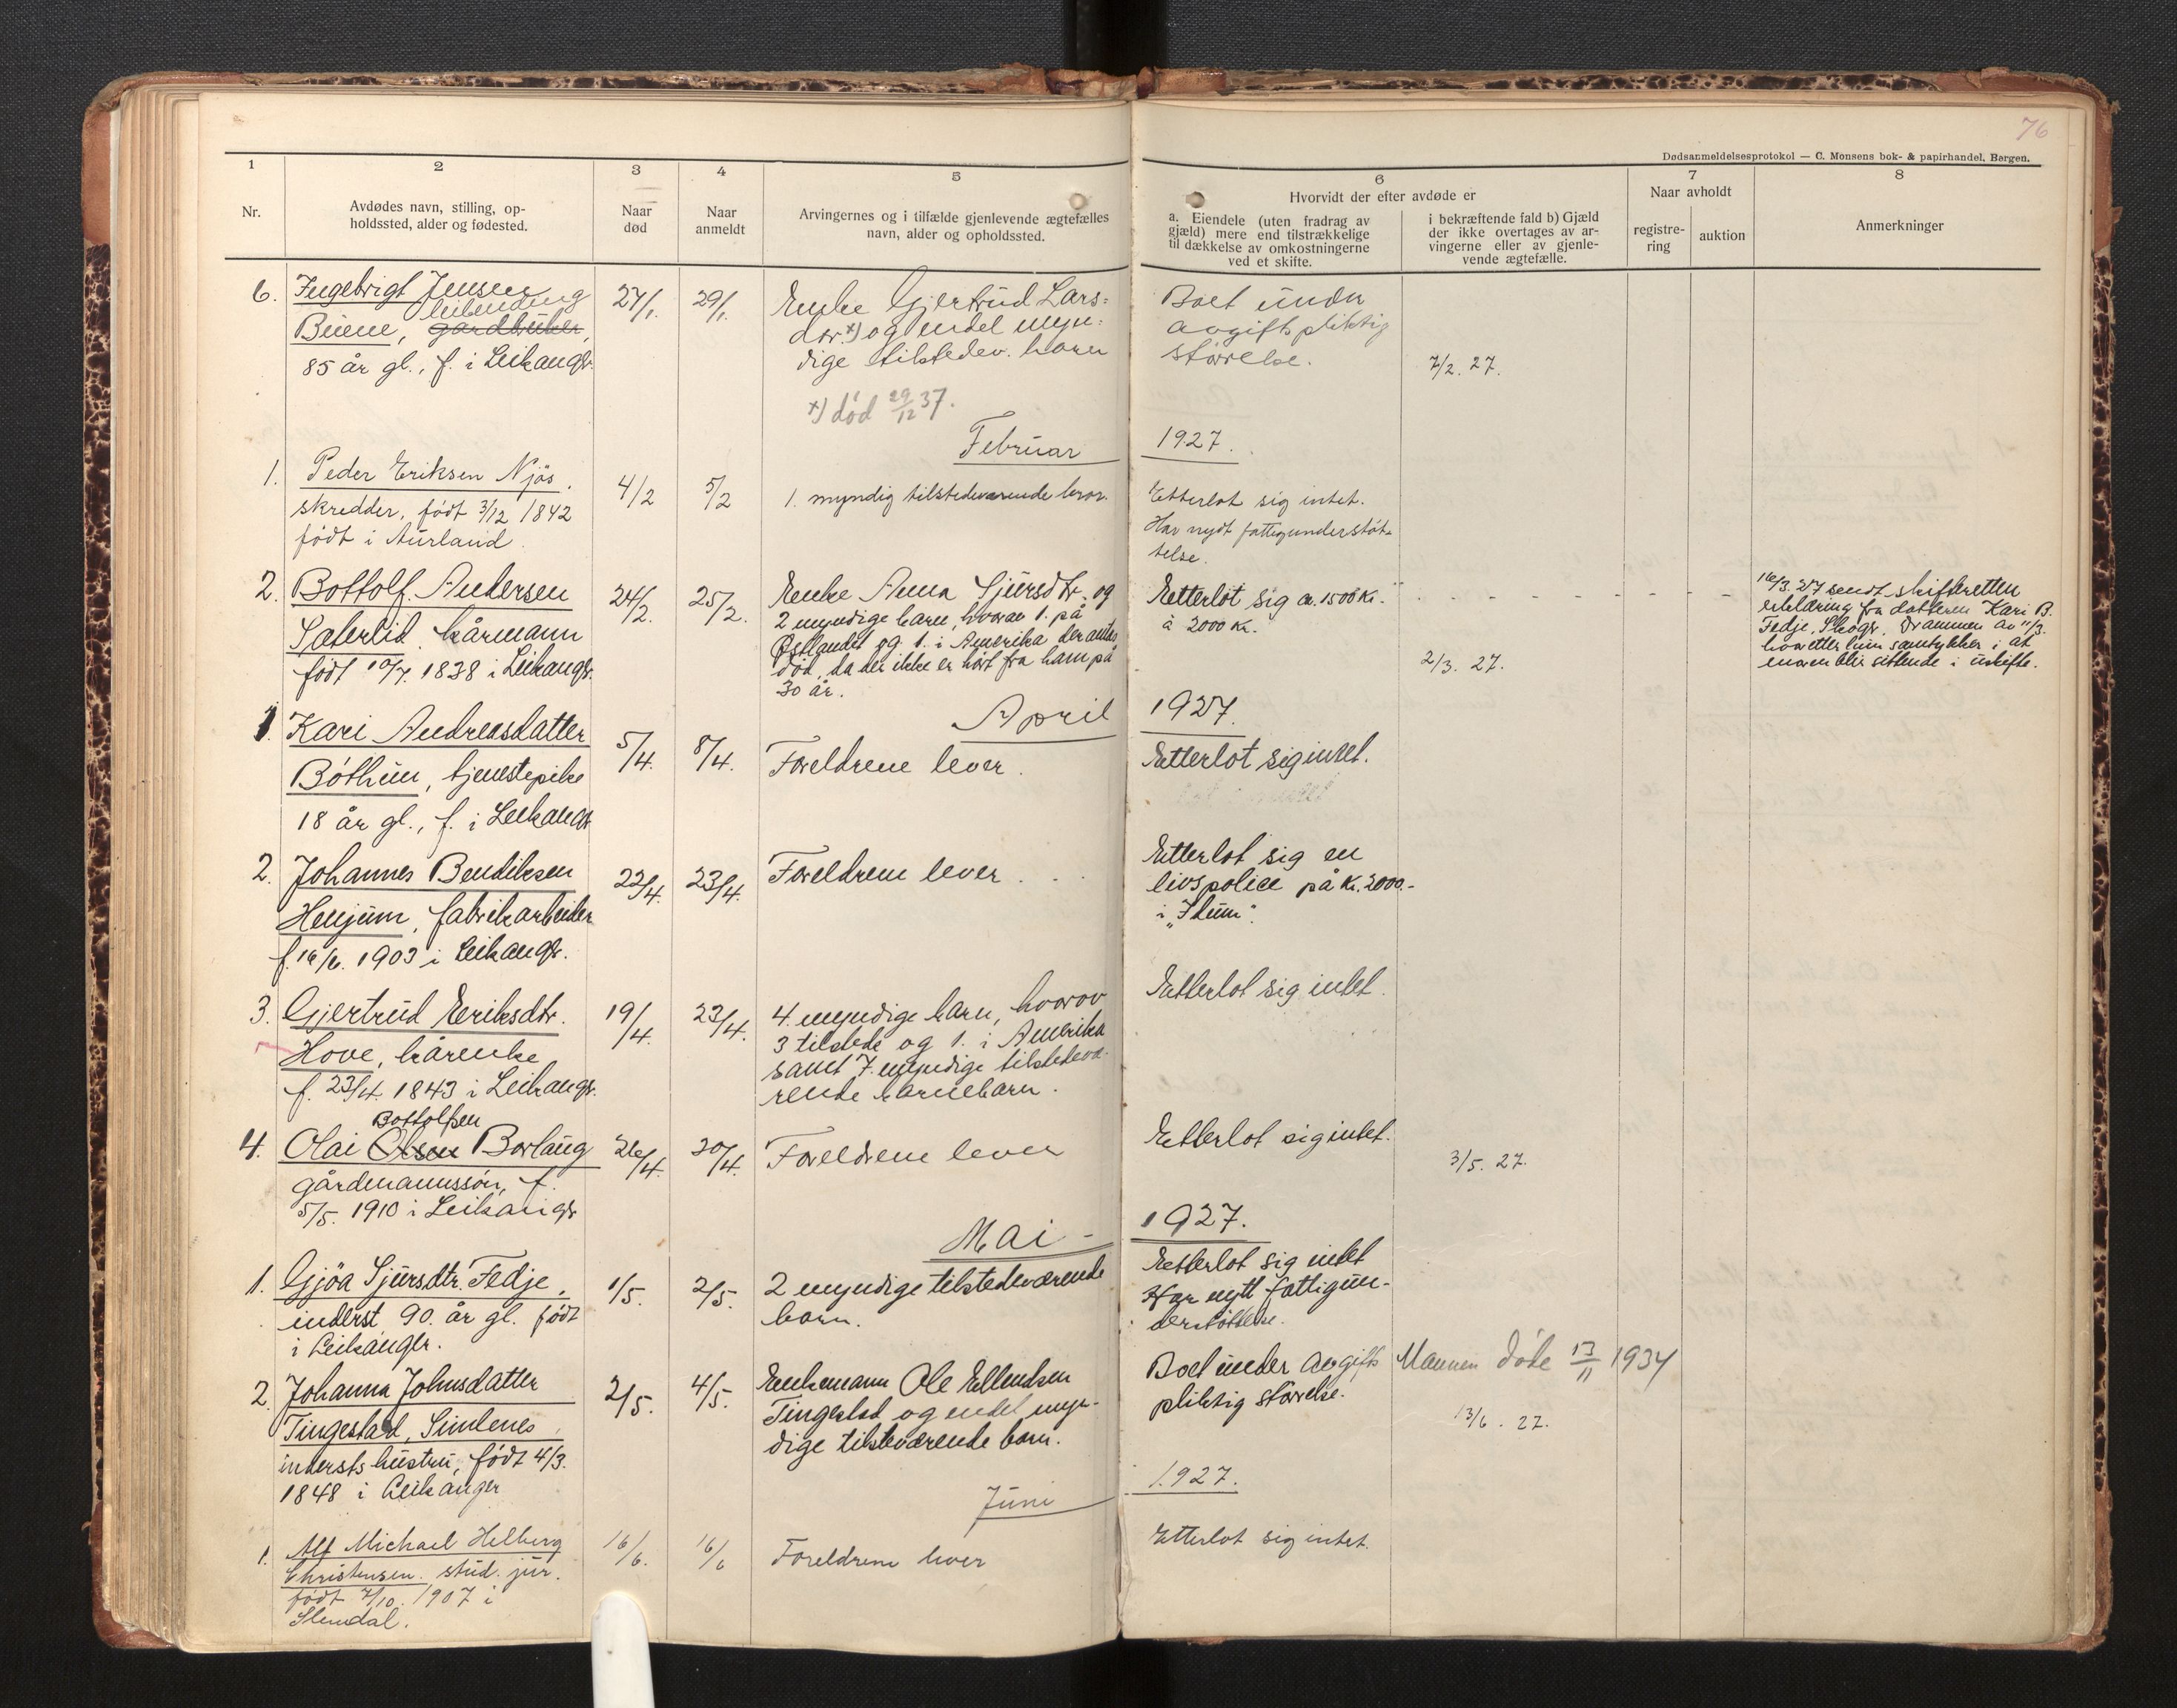 76
Dødsanmeldelsesprotokol — C. Monsens bok- & papirhandel, Bergen.
1
2
3
4
5
6
7
8
Nr.
Avdødes navn, stilling, op-
holdssted, alder og fødested.
Naar
død
Naar
anmeldt
Arvingernes og i tilfælde gjenlevende ægtefælles
navn, alder og opholdssted.
Hvorvidt der efter avdøde er
a. Eiendele (uten fradrag av
gjæld) mere end tilstrækkelige
til dækkelse av omkostningerne
ved et skifte.
i bekræftende fald b) Gjæld
der ikke overtages av ar-
vingerne eller av gjenle-
vende ægtefælle.
Naar avholdt
registre-
ring
auktion
Anmerkninger
6. Ingebrigt Jensen
leilending
Büene, gardbruker,
85 år gl., f. i Leikangr.
27/1.
29/1.
Enke Gjertrüd Lars-
dtr. x) og endel myn-
dige tilstedev. barn
x) død 29/12 37.
Boet ünder
avgiftspliktig
størrelse.
7/2. 27.
Februar 1927.
1. Peder Eriksen Njøs.
skredder, født 3/12 1842
født i Aürland.
4/2
5/2
1. myndig tilstedeværende bror.
Etterlot sig intet.
Har nydt fattigunderstøt-
telse.
2. Bottolf Andersen
Sæterlid kårmann
født 10/7. 1838 i Leikangr.
24/2.
25/2.
Enke Anna Sjürsdtr. og
2 myndige barn, hvorav 1. på
Østlandet og 1. i Amerika der antas
død, da der ikke er hørt fra ham på
30 år.
Etterlot sig ca. 1500 Kr.
à 2000 Kr.
2/3. 27.
16/3. 27 sendt skifteretten
erklæring fra datteren Kari B.
Fedje, Skogr. Drammen av 11/3.
hvoretter hün samtykker i at
enken blir sittende i üskifte.
April 1927.
1. Kari Andreasdatter
Bóthün, tjenestepike
18 år gl., f. i Leikangr
5/4.
8/4.
Foreldrene lever.
Etterlot sig intet.
2. Johannes Bendiksen
Henjüm, fabrikarbeider
f. 16/6. 1903 i Leikangr.
22/4.
23/4.
Foreldrene lever . . .
Etterlot sig en
livspolice på Kr. 2000.-
i "Idün".
3. Gjertrüd Eeriksdtr.
Hove, kårenke
f. 23/4. 1843 i Leikangr.
19/4.
23/4.
4. myndige barn, hvorav
3 tilstede og 1. i Amerika
samt 7. myndige tilstedevæ-
rende barnebarn.
Etterlot sig intet.
Bottolfsen
4. Olai Olsen Borlaüg
gårdmannssøn, f.
5/5. 1910 i Leikangr
26/4.
30/4.
Foreldrene lever
Etterlot sig intet.
3/5. 27.
Mai - 1927.
1. Gjöa Sjürsdtr. Fedje,
inderst 90. år gl. født
i Leikanger.
1/5.
2/5.
2 myndige tilstedeværende
barn.
Etterlot sig intet
Har nytt fattigün-
derstøttelse.
2. Johanna Johnsdatter
Tingestad, Simlenes
indersts hüstrü, født 4/3.
1848 i Leikanger
2/5.
4/5.
Enkemann Ole Ellendsen
Tingestad og endel myn-
dige tilsteværende barn.
Boet ünder avgifts
pliktig størrelse.
Mannen døde 13/11 1934
13/6. 27.
Jüni 1927.
1. Alf Michael Helberg
Christensen. stüd. jür.
født 7/10. 1907 i
16/6.
16/6
Foreldrene lever
Etterlot sig intet.